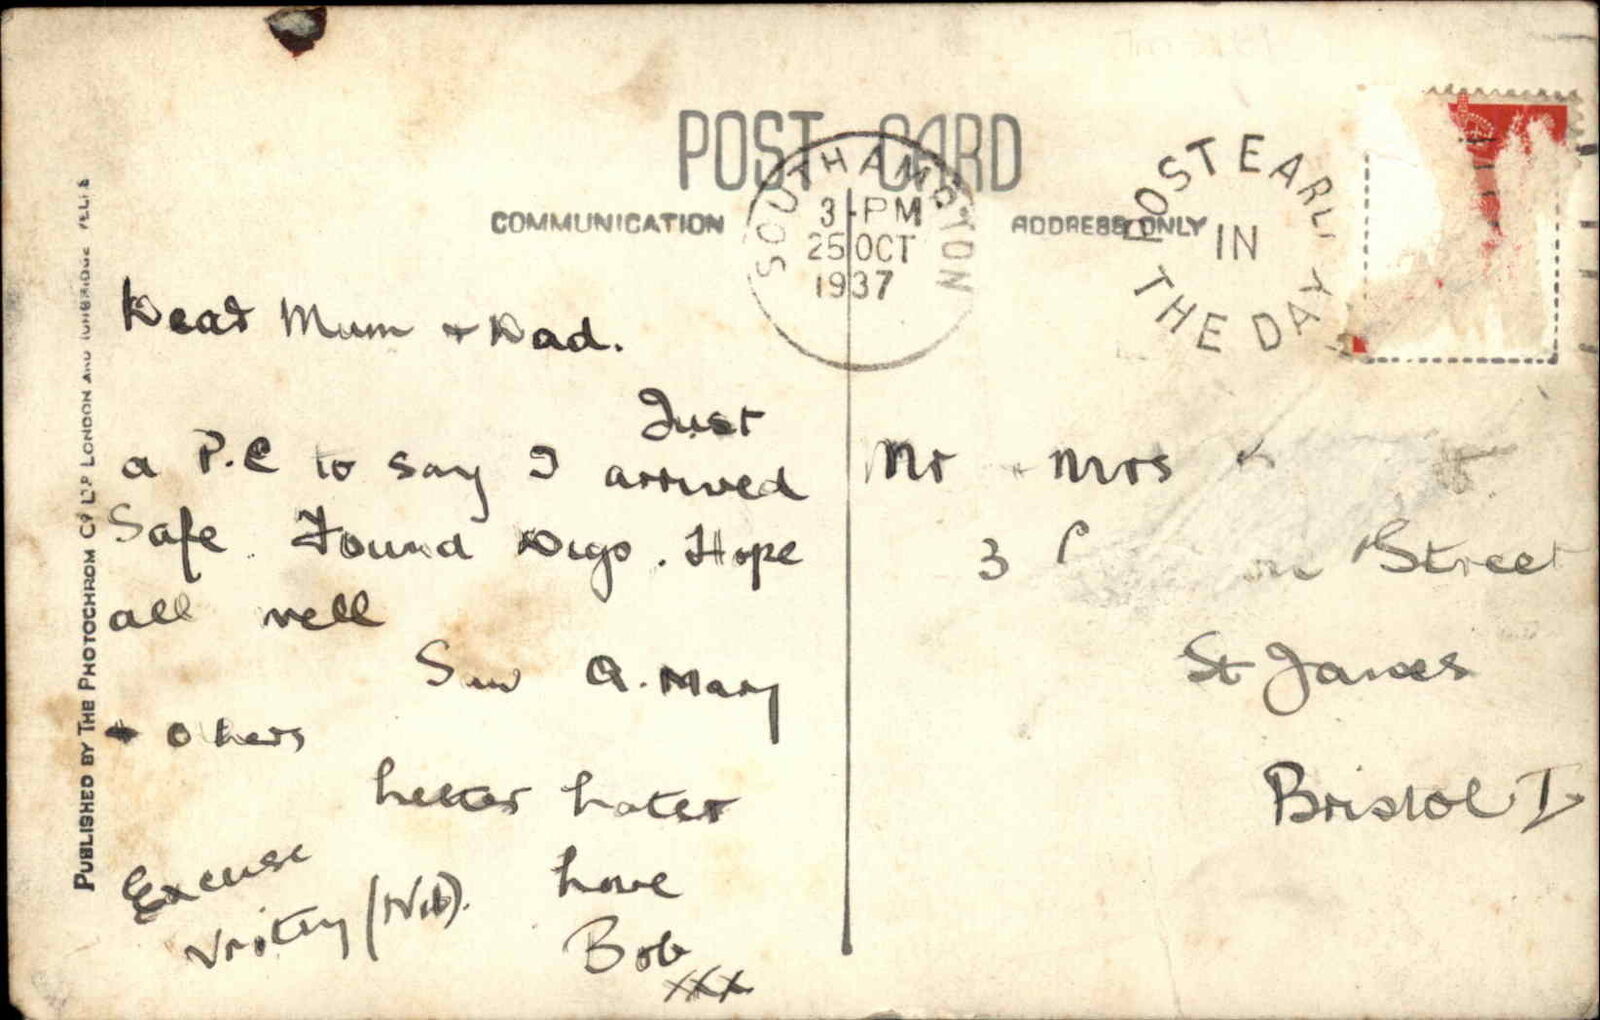 POST CARD
COMMUNICATION
ADDRESS ONLY
SOUTHAMPTON
3 - PM
25 OCT
1937
POST EARLY
IN
THE DAY
Dear Mum + Dad.
Just
a P.C to say I arrived
Safe. Found Digs. Hope
all well
Saw Q. Mary
+ others
Letter Later
Love
Bob
xxx
Excuse
Writing (Nib).
Mr + Mrs
3 Street
St James
Bristol I
PUBLISHED BY THE PHOTOCHROM CO LTD LONDON AND TUNBRIDGE WELLS